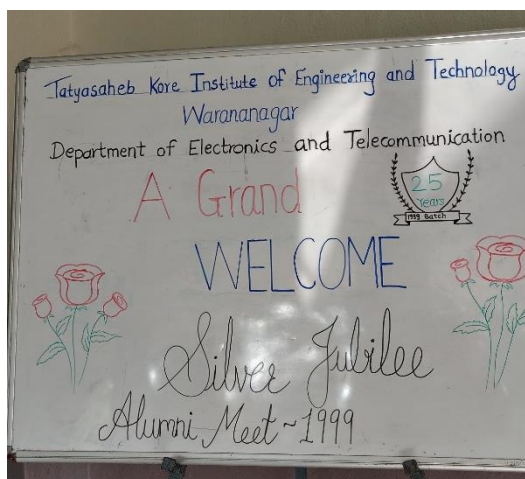 Tatyasaheb Kore Institute of Engineering and Technology
Warananagar
Department of Electronics and Telecommunication
25
Years
1999 Batch
A Grand
WELCOME
Silver Jubilee
Alumni Meet ~ 1999